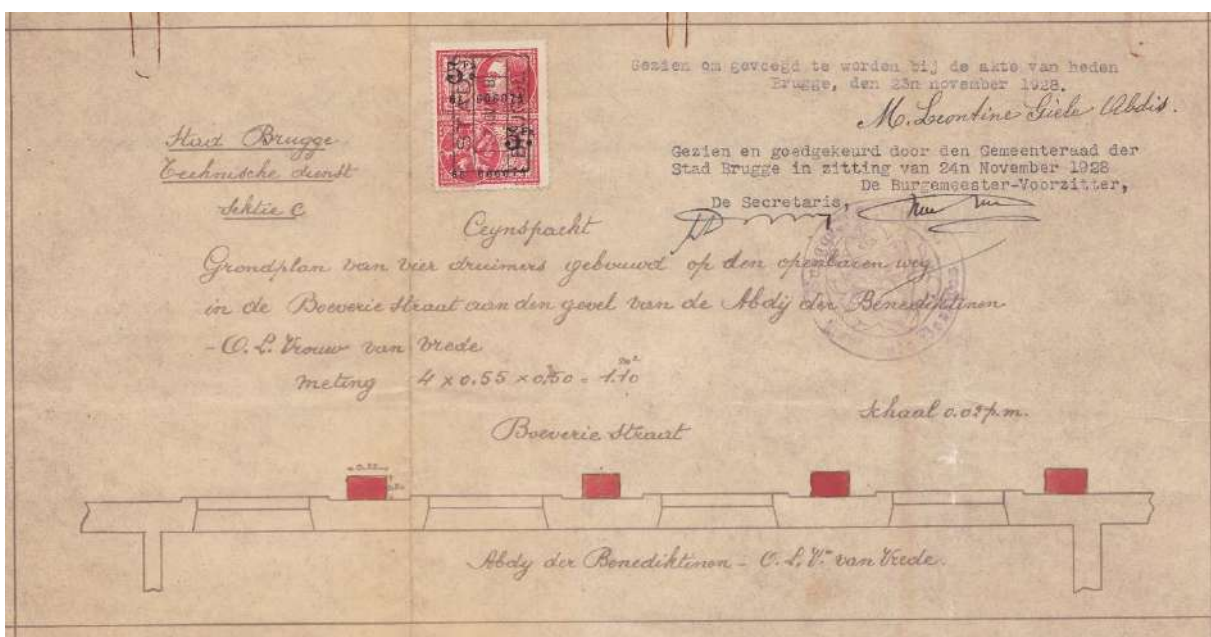 Gezien om gevoegd te worden bij de akte van heden
Brugge, den 23n november 1928.
M. Leontine Giele Abdis.
Stad Brugge
Technische dienst
Sektie C
Gezien en goedgekeurd door den Gemeenteraad der
Stad Brugge in zitting van 24n November 1928
De Burgemeester-Voorzitter,
De Secretaris,
Ceynspacht
Grondplan van vier druimers gebouwd op den openbaren weg
in de Boeverie straat aan den gevel van de Abdij der Benediktinen
- O. L. Vrouw van Vrede
meting 4 x 0.55 x 0.50 = 1.10 m²
Schaal 0.02 p.m.
Boeverie straat
0.55
0.50
Abdy der Benediktinen - O. L. V. van Vrede.